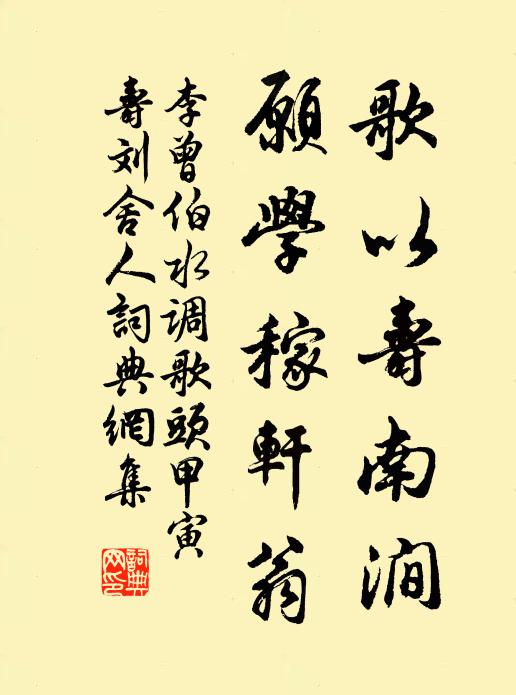 歌以壽南澗
願學稼軒翁
李曾伯水调歌頭甲寅
壽刘舍人詞典網集
詞典网印